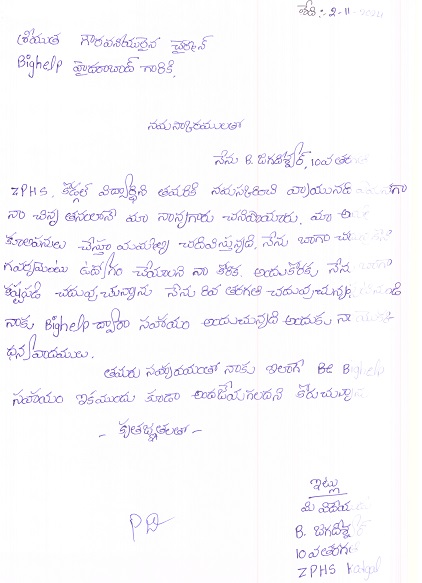 తేది :- 2-11-2024
శ్రీయుత గౌరవనీయులైన చైర్మన్
Bighelp హైదరాబాద్ గారికి,
నమస్కారములతో
నేను B. జగదీశ్వర్, 10వ తర
ZPHS. విద్యార్థిని తమరికి నమస్కరించి వ్రాయునది
నా చిన్న తనంలోనే మా నాన్నగారు చనిపోయారు. మా
కూలిపనులు చేస్తూ మమ్మల్ని చదివిస్తున్నది. నేను బాగా
ఉద్యోగం చేయాలని నా కోరిక. అందుకొరకు నేను బాగా
కష్టపడి చదువుచున్నాను నేను 8వ తరగతి చదువుచున్న
నాకు Bighelp ద్వారా సహాయం అందుచున్నది అందుకు నా
ధన్యవాదములు.
తమరు నాకు ఇలాగే Be Bighelp
సహాయం ఇకముందు కూడా అందజేయగలరని కోరుచున్నాను
- కృతజ్ఞతలతో -
ఇట్లు
మీ విధేయ
B. జగదీశ్వర్
10వ తరగతి
ZPHS